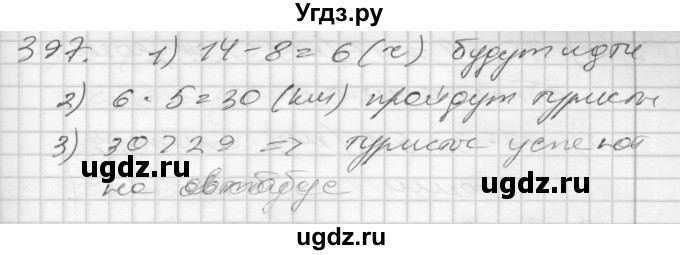 Угдз.ру
397. 1) 14 - 8 = 6 (ч) будут идти
2) 6 · 5 = 30 (км) пройдут туристы
3) 30 > 29 => туристы успеют
на автобус
ugdz.ru ugdz.ru
ugdz.ru